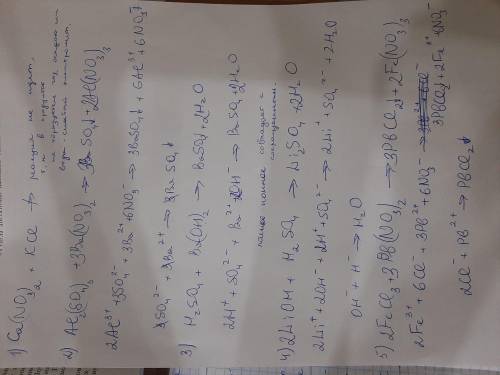 1) Ca(NO₃)₂ + KCl ↛ реакция не идет,
т.к в продукте
не образуется газ, осадок или
вода - слабый электролит.
2) Al₂(SO₄)₃ + 3Ba(NO₃)₂ → 3BaSO₄↓ + 2Al(NO₃)₃
2Al³⁺ + 3SO₄²⁻ + 3Ba²⁺ + 6NO₃⁻ → 3BaSO₄↓ + 6Al³⁺ + 6NO₃⁻
3SO₄²⁻ + 3Ba²⁺ → 3BaSO₄↓
3) H₂SO₄ + Ba(OH)₂ → BaSO₄↓ + 2H₂O
2H⁺ + SO₄²⁻ + Ba²⁺ + 2OH⁻ → BaSO₄ + 2H₂O
полное ионное совпадает с
сокращенным.
4) 2LiOH + H₂SO₄ → Li₂SO₄ + 2H₂O
2Li⁺ + 2OH⁻ + 2H⁺ + SO₄²⁻ → 2Li⁺ + SO₄²⁻ + 2H₂O
OH⁻ + H⁻ → H₂O
5) 2FeCl₃ + 3Pb(NO₃)₂ → 3PbCl₂↓ + 2Fe(NO₃)₃
2Fe³⁺ + 6Cl⁻ + 3Pb²⁺ + 6NO₃⁻ →
3PbCl₂↓ + 2Fe³⁺ + 6NO₃⁻
2Cl⁻ + Pb²⁺ → PbCl₂↓